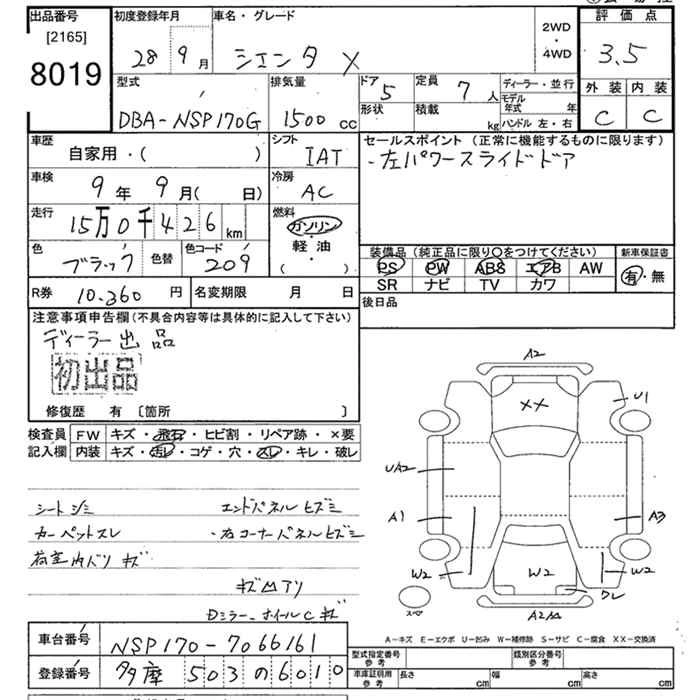 出品番号
[2165]
8019
初度登録年月
28 9月
車名・グレード
シエンタ X
2WD
・
4WD
評価点
3.5
外装 内装
C C
型式
DBA-NSP170G
排気量
1500 cc
ドア 5
定員 7人
形状
積載 kg
ディーラー・並行
モデル年式 年
ハンドル 左・右
車歴
自家用・( )
シフト
IAT
セールスポイント(正常に機能するものに限ります)
・左パワースライドドア
車検
9年 9月( 日)
冷房
AC
走行
15万0千426km
燃料
ガソリン
・
軽油
( )
色
ブラック
色替
色コード
209
装備品(純正品に限り○をつけてください)
PS PW ABS エアB AW
SR ナビ TV カワ
新車保証書
有・無
R券 10,360円
名変期限 月 日
後日品
注意事項申告欄(不具合内容等は具体的に記入して下さい)
ディーラー出品
初出品
修復歴 有 [箇所 ]
検査員記入欄
FW キズ・飛石・ヒビ割・リペア跡・×要
内装 キズ・汚レ・コゲ・穴・スレ・キレ・破レ
シートシミ
エンドパネルヒズミ
カーペットスレ
・右コーナーパネルヒズミ
荷室内バリキズ
キズ凹アリ
Dミラー、ホイールCキズ
A2
XX
U1
UA2
A1
A3
W2
W2
W2
A2
A-キズ E-エクボ U-凹み W-補修跡 S-サビ C-腐食 XX-交換済
車台番号 NSP170-7066161
登録番号 多摩 503の6010
型式指定番号
参考
類別区分番号
参考
車庫証明用
参考
長さ cm
幅 cm
高さ cm